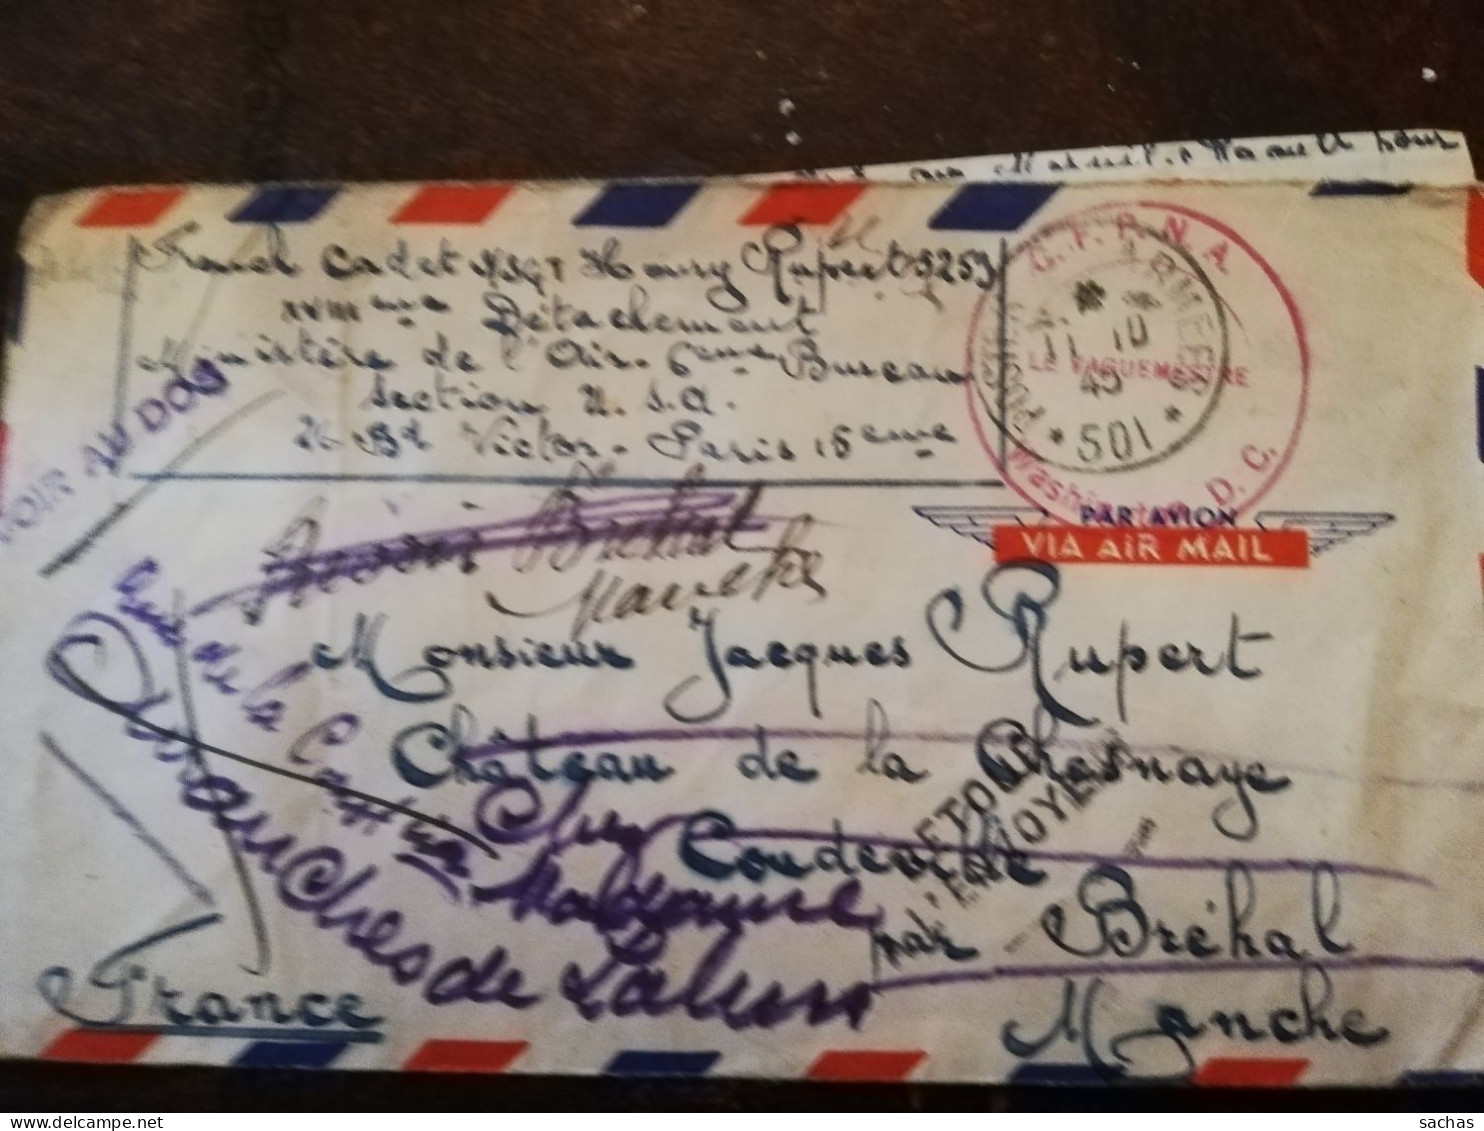 French Cadet M/Sgt Henry Rupert 9253
XVIIIème Détachement
Ministère de l'Air. 6ème Bureau
Section U.S.A.
26 Bd Victor - Paris 15ème
C.F.P.N.A.
LE VAGUEMESTRE
Washington D.C.
POSTE AUX ARMEES
11 10
45
* 501 *
VOIR AU DOS
PAR AVION
VIA AIR MAIL
Bréhal
Manche
Monsieur Jacques Rupert
Château de la Chesnaye
Coudeville
par Bréhal
Manche
France
RETOUR
Chez
Madame
de la
Avranches
sachas